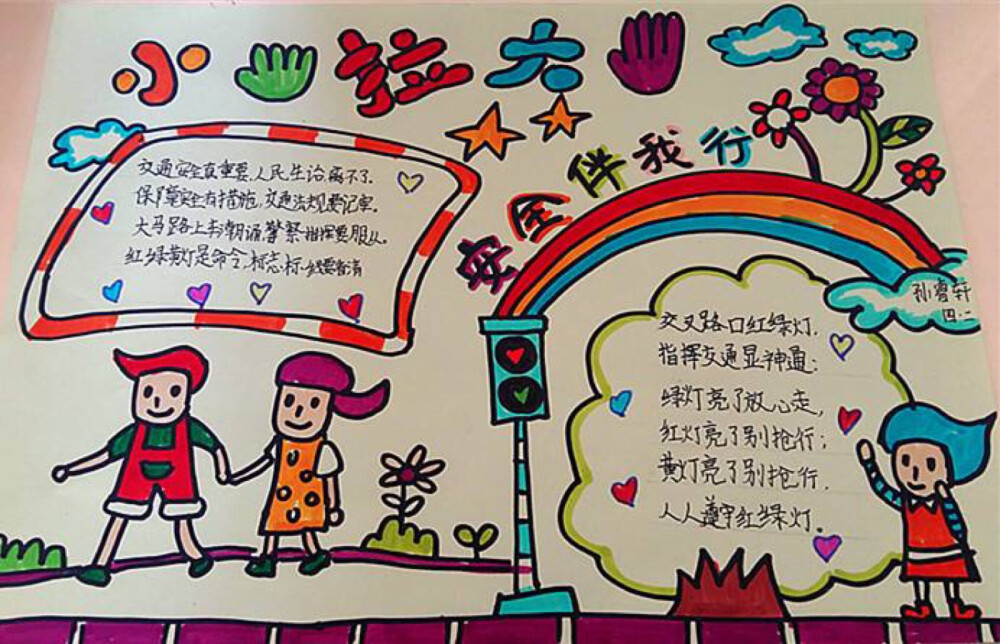 小手拉大手
安全伴我行
交通安全真重要,人民生活离不了.
保障安全有措施,交通法规要记牢。
大马路上车潮涌,警察指挥要服从。
红绿黄灯是命令,标志标线要看清
孙睿轩
四.一
交叉路口红绿灯.
指挥交通显神通:
绿灯亮了放心走,
红灯亮了别抢行;
黄灯亮了别抢行.
人人遵守红绿灯。